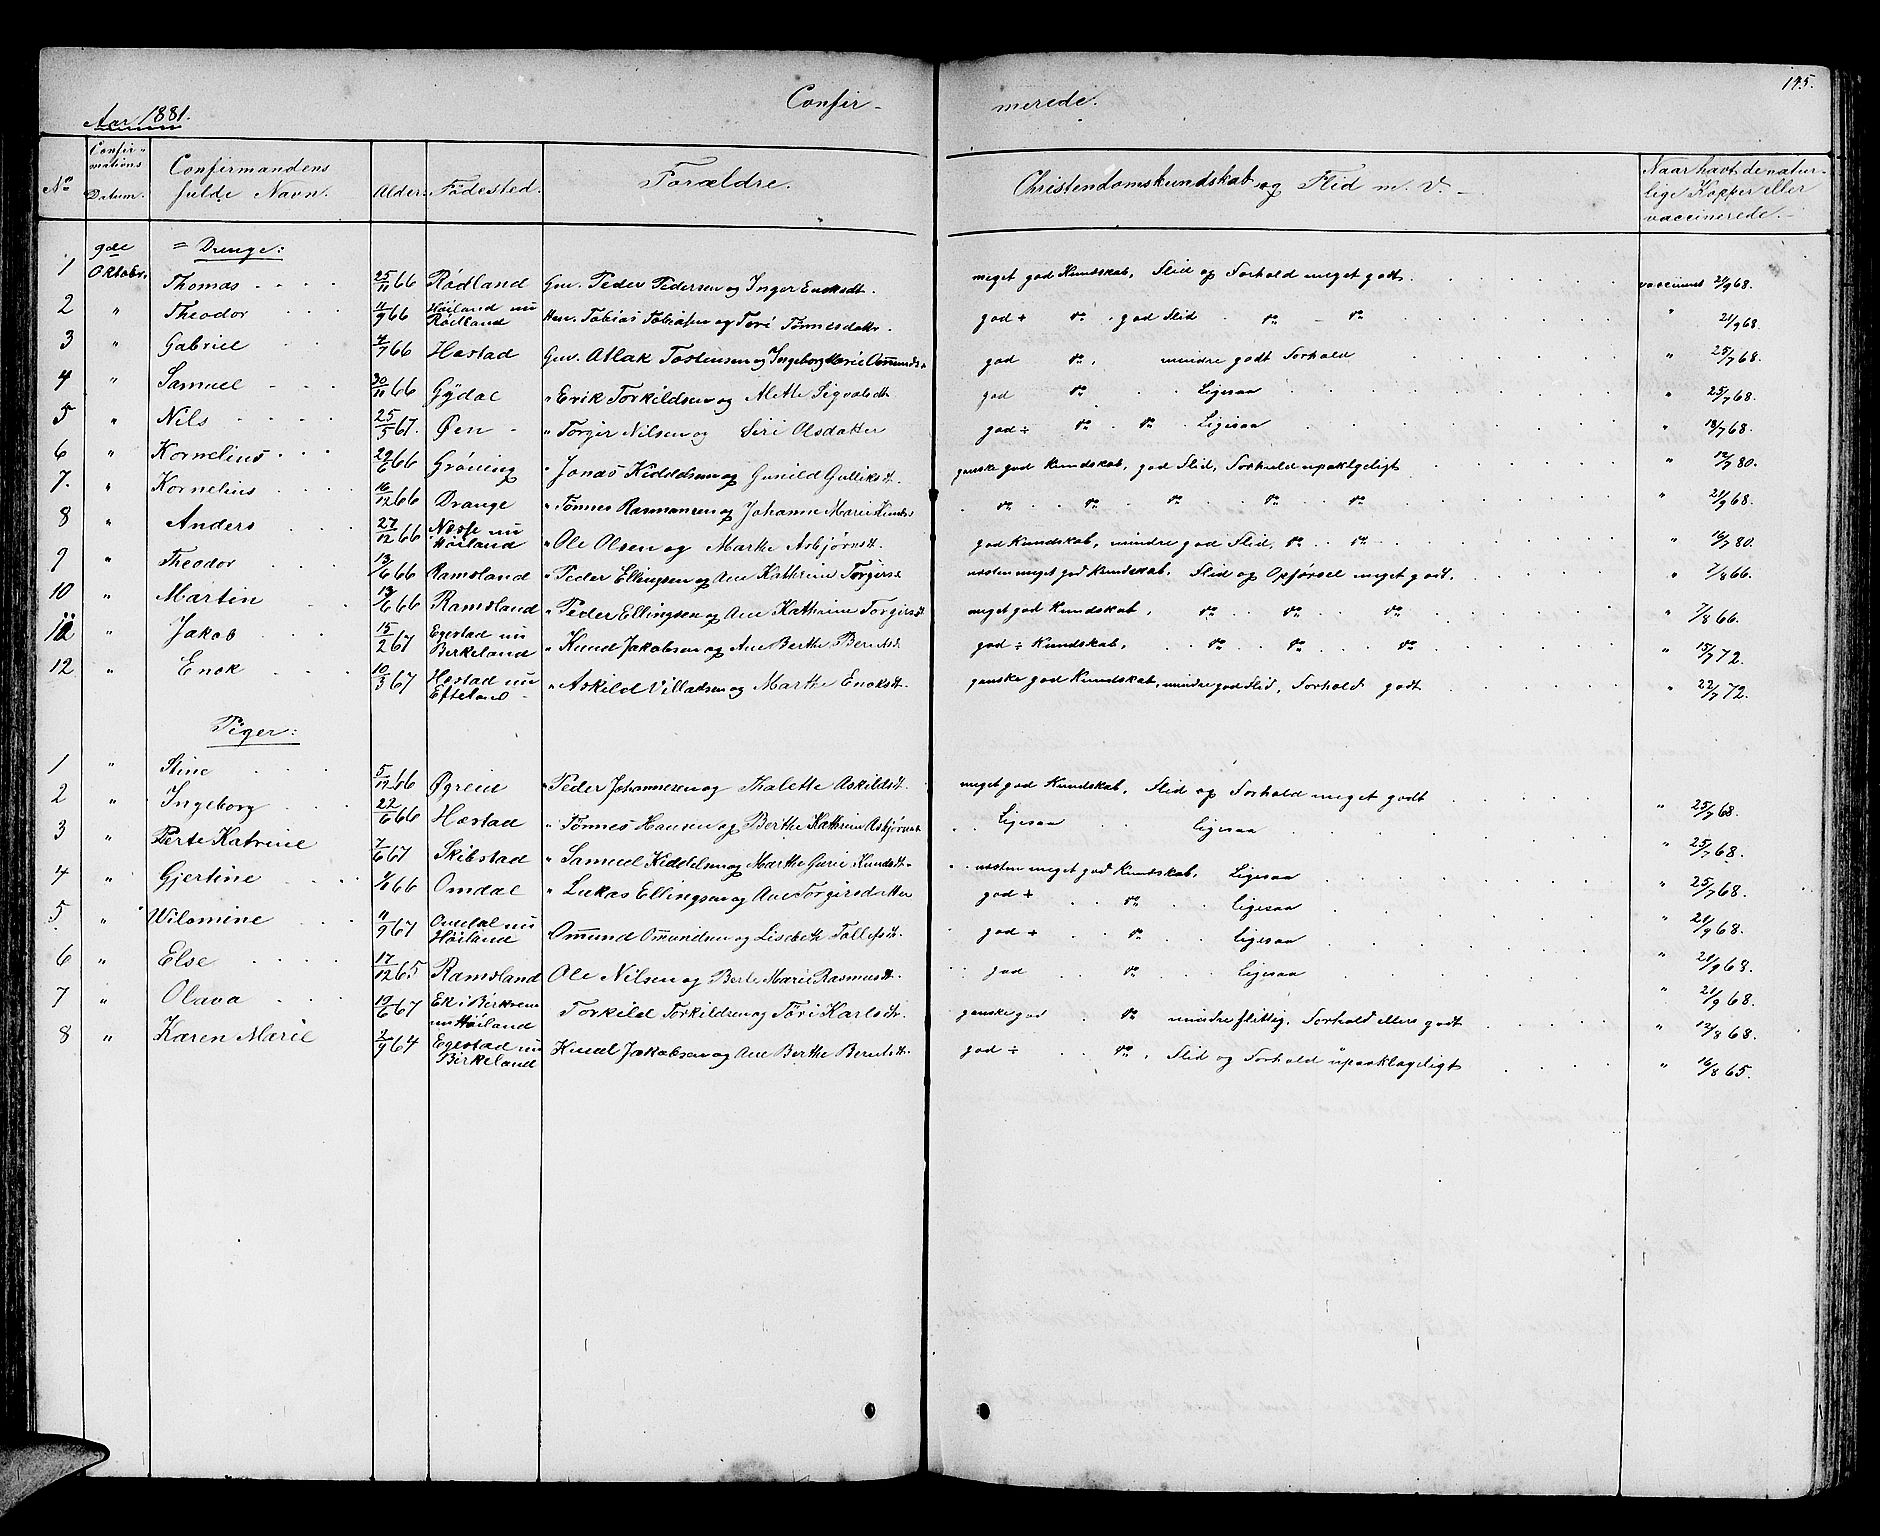 145.
Confir- merede.
Aar 1881.
No Confirmations Datum. Confirmandens fulde Navn. Alder. Fødested. Forældre. Christendomskundskab og Flid m. V. Naar havt de naturlige Kopper eller vaccinerede.
9de Oktobr. Drenge:
1 Thomas 25/11 66 Rødland Gm. Peder Pedersen og Inger Enoksdt. meget god Kundskab, Flid og Forhold meget godt vaccineret 21/9 68.
2 " Theodor 11/9 66 Høiland nu Rødland Tobias Tobiasen og Tori Tønnesdatter god + do, god Flid do do " 21/9 68.
3 " Gabriel 4/7 66 Hæstad Gm. Atlak Tostensen og Ingeborg Marie Omunds god do, mindre godt Forhold " 25/7 68.
4 " Samuel 30/11 66 Gydal " Erik Torkildsen og Mette Sigvalsdt god do Ligesaa " 25/7 68.
5 " Nils 25/5 67. Øen " Torger Nilsen og Siri Olsdatter god ÷ do do Ligesaa " 18/7 68.
6 " Kornelius 29/6 66 Grøning " Jonas Kiddelsen og Gunild Gulliksdt. ganske god Kundskab, god Flid, Forhold upaaklgeligt " 12/7 80.
7. " Kornelius 16/12 66 Drange " Tønnes Rasmussen og Johanne Marie Knuds do do do do do " 21/9 68.
8 " Anders 27/12 66 Nesse nu Høiland " Ole Olsen og Marthe Asbjørnsdt. god Kundskab, mindre god Flid, do do " 16/7 80.
9 " Theodor 13/6 66 Ramsland " Peder Ellingsen og Ane Kathrine Torgersd næsten meget god Kundskab, Flid og Opførsel meget godt " 7/8 66.
10 " Martin 13/6 66 Ramsland " Peder Ellingsen og Ane Kathrine Torgersdt meget god Kundskab, do do do " 7/8 66.
11 " Jakob 15/2 67 Egestad nu Birkeland " Knud Jakobsen og Ane Berthe Berntsd god ÷ Kundskab, do do do " 15/7 72.
12 " Enok 10/3 67 Hæstad nu Efteland " Askild Villadsen og Marthe Enoksdt. ganske god Kundskab, mindre god Flid, Forhold godt " 22/7 72.
Piger:
1 " Stine 5/12 66 Øgreid " Peder Johannesen og Thalette Askildsdt. meget god Kundskab, Flid og Forhold meget godt " 25/7 68.
2 " Ingeborg 22/6 66 Hæstad " Tønnes Hansen og Berthe Kathrine Asbjørnsdt Ligesaa Ligesaa " 25/7 68.
3 " Berte Katrine 7/6 67 Skibstad " Samuel Kiddelsen og Marthe Gurie Knudsdt. næsten meget god Kundskab, Ligesaa " 25/7 68.
4 " Gjertine 66 Omdal " Lukas Ellingsen og Ane Torgersdatter god + do Ligesaa " 21/9 68.
5 " Wilomine 11/9 67 Omdal nu Høiland Omund Omundsen og Lisebeth Tollefsdt. god + do Ligesaa " 21/9 68.
6 " Else 17/12 65 Ramsland Ole Nilsen og Berte Marie Rasmusdt. god do Ligesaa " 21/9 68.
7 " Olava 19/6 67 Ek i Birkrem nu Høiland Torkild Torkildsen og Tori Karlsdt. ganske god do mindre flittig, Forhold ellers godt " 12/8 68.
8 " Karen Marie 2/9 64 Egestad nu Birkeland Knud Jakobsen og Ane Berthe Berntsdt. god ÷ do, Flid og Forhold upaaklageligt " 16/8 65.